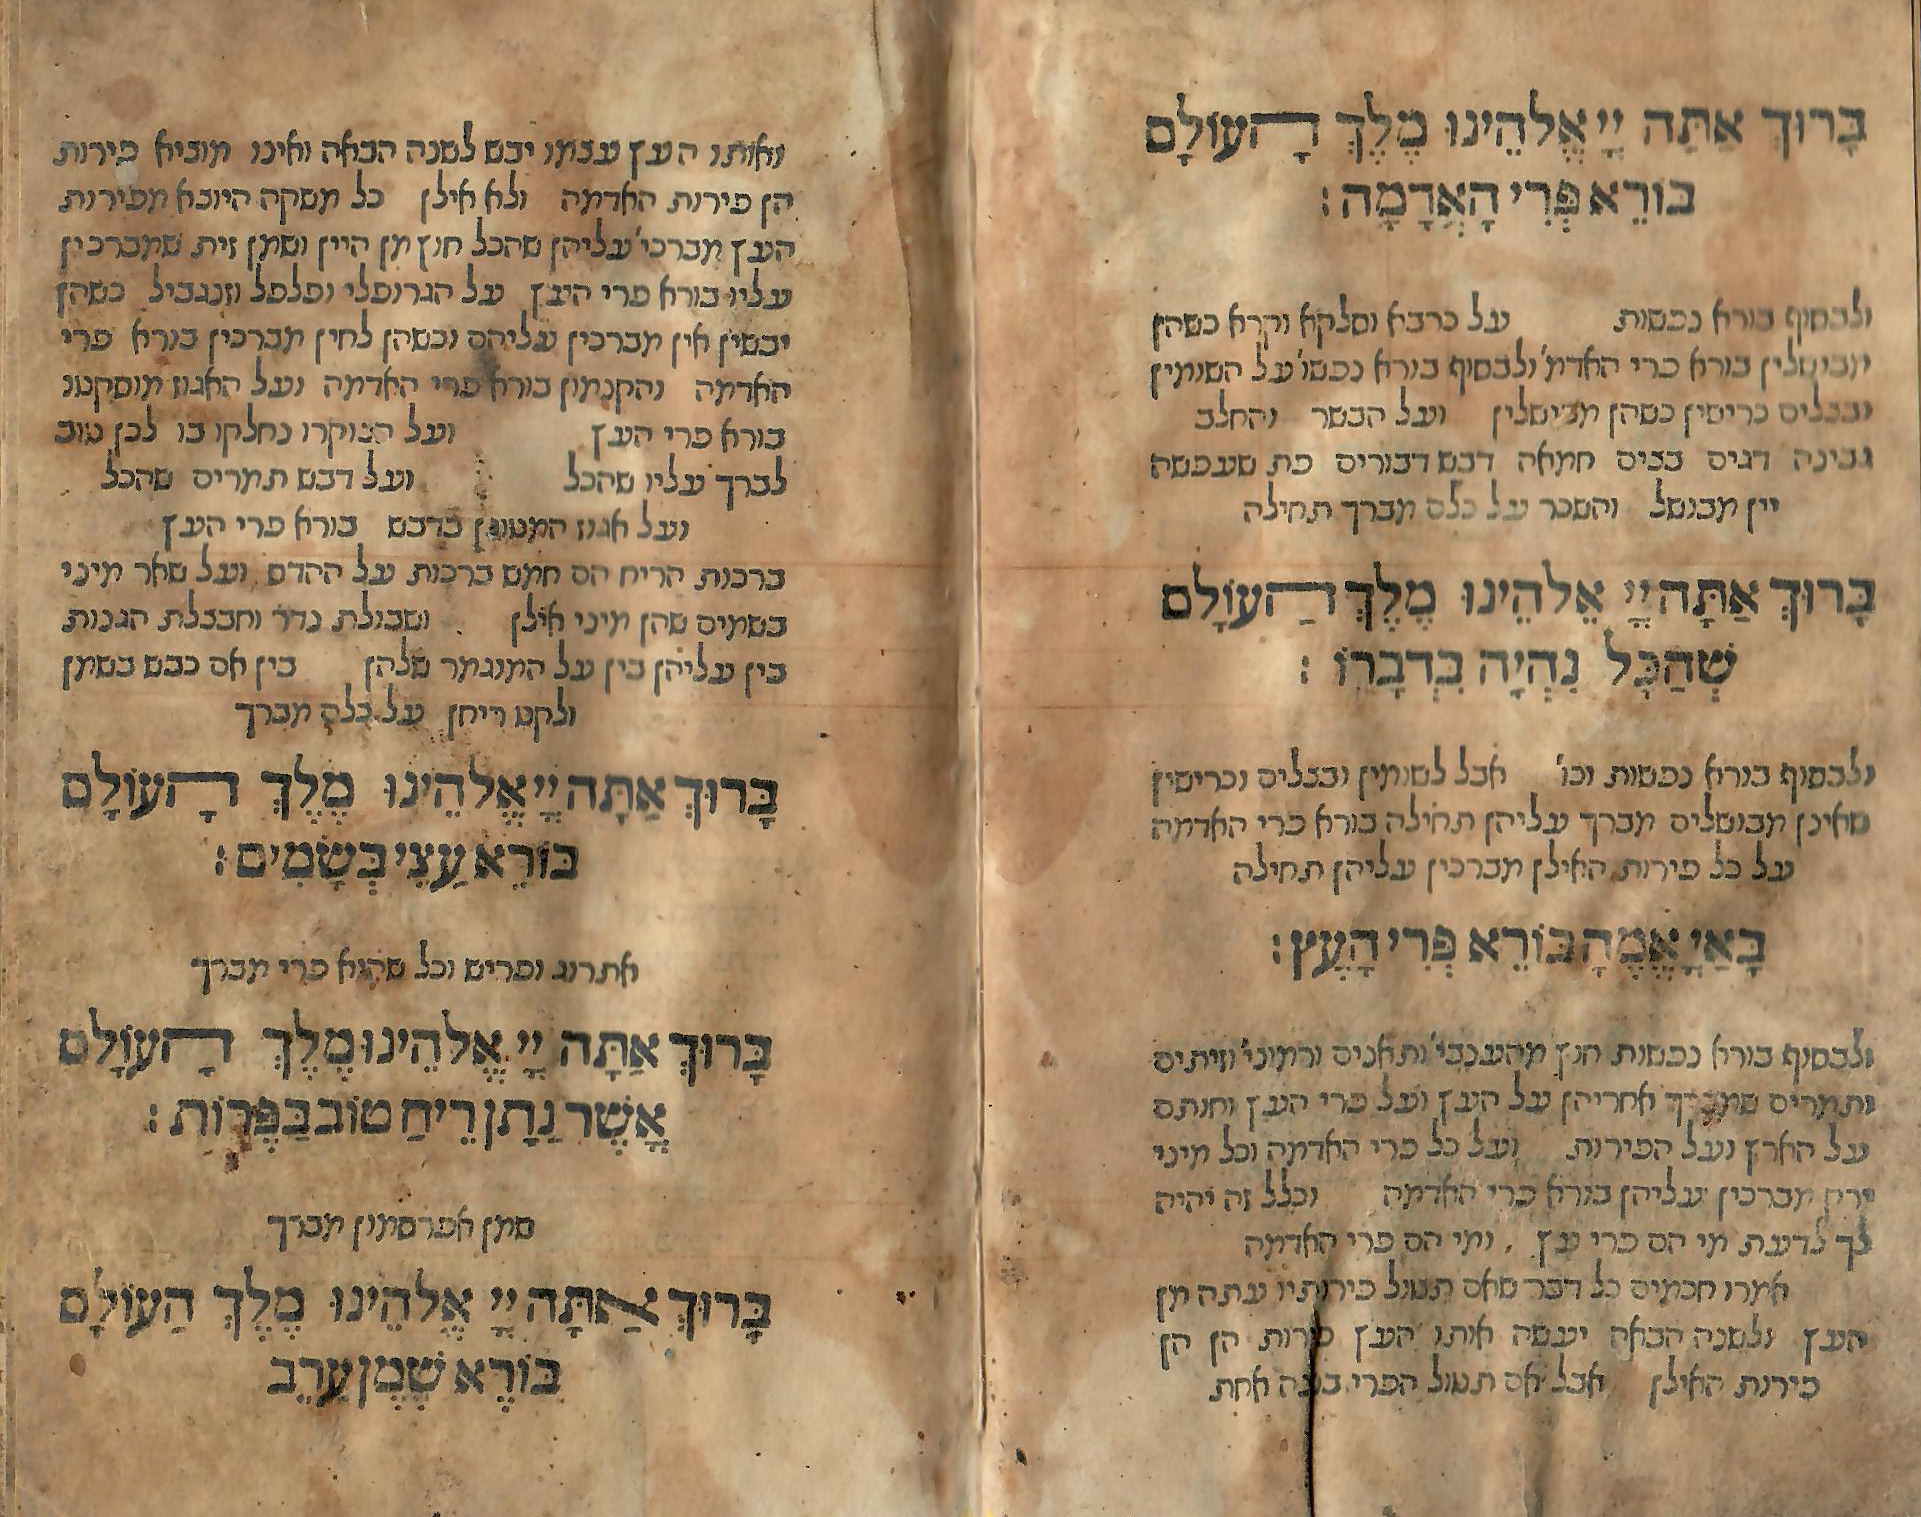 בָּרוּךְ אַתָּה יְיָ אֱלֹהֵינוּ מֶלֶךְ הָעוֹלָם
בּוֹרֵא פְּרִי הָאֲדָמָה :
ולבסוף בורא נפשות על כרבא וסלקא וקרא כשהן
מבושלין בורא פרי האדמ' ולבסוף בורא נפשו' על השומין
ובצלים כרישין כשהן מבושלין ועל הבשר והחלב
גבינה דגים בצים חמאה דבש דבורים פת שעפשה
יין מבושל והשכר על כלם מברך תחילה
בָּרוּךְ אַתָּה יְיָ אֱלֹהֵינוּ מֶלֶךְ הָעוֹלָם
שֶׁהַכֹּל נִהְיָה בִּדְבָרוֹ :
ולבסוף בורא נפשות וכו' אבל לשומין ובצלים וכרישין
שאינן מבושלים מברך עליהן תחילה בורא פרי האדמה
על כל פירות האילן מברכין עליהן תחילה
בָּאַיְיָאֱמֶהָ בּוֹרֵא פְּרִי הָעֵץ :
ולבסוף בורא נפשות חוץ מהענבי' ותאנים ורמוני' וזיתים
ותמרים שמברך אחריהן על העץ ועל פרי העץ וחותם
על הארץ ועל הפירות ועל כל פרי האדמה וכל מיני
ירק מברכין עליהן בורא פרי האדמה וכלל זה יהיה
לך לדעת מי הם פרי עץ ומי הם פרי האדמה
אמרו חכמים כל דבר שאם תטול פירותיו עתה מן
העץ ולשנה הבאה יעשה אותו העץ פירות הן הן
פירות האילן אבל אם תטול הפרי בשנה אחת
ואותו העץ עצמו יבש לשנה הבאה ואינו מוציא פירות
הן פירות האדמה ולא אילן כל משקה היוצא מפירות
העץ מברכי' עליהן שהכל חוץ מן היין ושמן זית שמברכין
עליו בורא פרי העץ על הגרופלי ופלפל וזנגביל כשהן
יבשין אין מברכין עליהם וכשהן לחין מברכין בורא פרי
האדמה והקנמון בורא פרי האדמה ועל האגוז מוסקטו
בורא פרי העץ ועל הצוקרו נחלקו בו לכן טוב
לברך עליו שהכל ועל דבש תמרים שהכל
ועל אגוז המטוגן בדבש בורא פרי העץ
ברכות הריח הם חמש ברכות על ההדס ועל שאר מיני
בשמים שהן מיני אילן ושבולת נרד וחבצלת הגנות
בין עליהן בין על המוגמר שלהן בין אם כבש בשמן
ולקט ריחן על כלם מברך
בָּרוּךְ אַתָּה יְיָ אֱלֹהֵינוּ מֶלֶךְ הָעוֹלָם
בּוֹרֵא עֲצֵי בְשָׂמִים :
אתרוג ופריש וכל שהוא פרי מברך
בָּרוּךְ אַתָּה יְיָ אֱלֹהֵינוּ מֶלֶךְ הָעוֹלָם
אֲשֶׁר נָתַן רֵיחַ טוֹב בַּפֵּרוֹת :
שמן אפרסמון מברך
בָּרוּךְ אַתָּה יְיָ אֱלֹהֵינוּ מֶלֶךְ הַעוֹלָם
בּוֹרֵא שֶׁמֶן עָרֵב